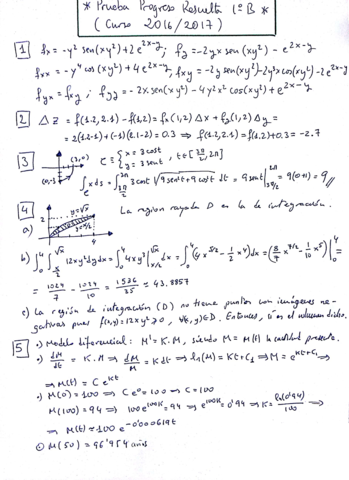 * Prueba Progreso Resuelta 1º B *
(Curso 2016/2017)
1 fx = -y² sen(xy²) + 2e^(2x-y) ; fy = -2yx sen(xy²) - e^(2x-y)
fxx = -y⁴ cos(xy²) + 4e^(2x-y) ; fxy = -2y sen(xy²) - 2y³x cos(xy²) - 2e^(2x-y)
fyx = fxy ; fyy = -2x sen(xy²) - 4y²x² cos(xy²) + e^(2x-y)
2 Δz = f(1.2,2.1) - f(1,2) = fx(1,2)Δx + fy(1,2)Δy =
= 2(1.2-1) + (-1)(2.1-2) = 0.3 ⇒ f(1.2,2.1) = f(1,2) + 0.3 = -2.7
3 (3,0) C = { x = 3 cos t
(0,-3) y = 3 sen t , t ∈ [3π/2, 2π]
∫_C x ds = ∫_(3π/2)^(2π) 3 cos t √(9sen²t + 9cos²t) dt = 9 sen t |_(3π/2)^(2π) = 9(0+1) = 9
4 La region rayada D es la de integración.
a) 2 y=√x y=x/2 4
b) ∫_0^4 ∫_(x/2)^(√x) 12xy² dy dx = ∫_0^4 4xy³ |_(x/2)^(√x) dx = ∫_0^4 (4x^(5/2) - 1/2 x⁴) dx = (8/7 x^(7/2) - 1/10 x⁵) |_0^4 =
= 1024/7 - 1024/10 = 1536/35 ≃ 43.8857
c) La región de integración (D) no tiene puntos con imágenes ne-
gativas pues f(x,y) = 12xy² ≥ 0, ∀(x,y) ∈ D. Entonces, sí es el volumen dicho.
5 a) Modelo diferencial: M' = K.M, siendo M = M(t) la cantidad presente.
b) dM/dt = K.M ⇒ dM/M = K dt ⇒ ln(M) = Kt + C₁ ⇒ M = e^(Kt+C₁)
⇒ M(t) = C e^(Kt)
M(0) = 100 ⇒ C e⁰ = 100 ⇒ C = 100
M(100) = 94 ⇒ 100 e^(100K) = 94 ⇒ e^(100K) = 0'94 ⇒ K = ln(0'94)/100 ⇒
⇒ M(t) = 100 e^(-0'000619t)
c) M(50) = 96'954